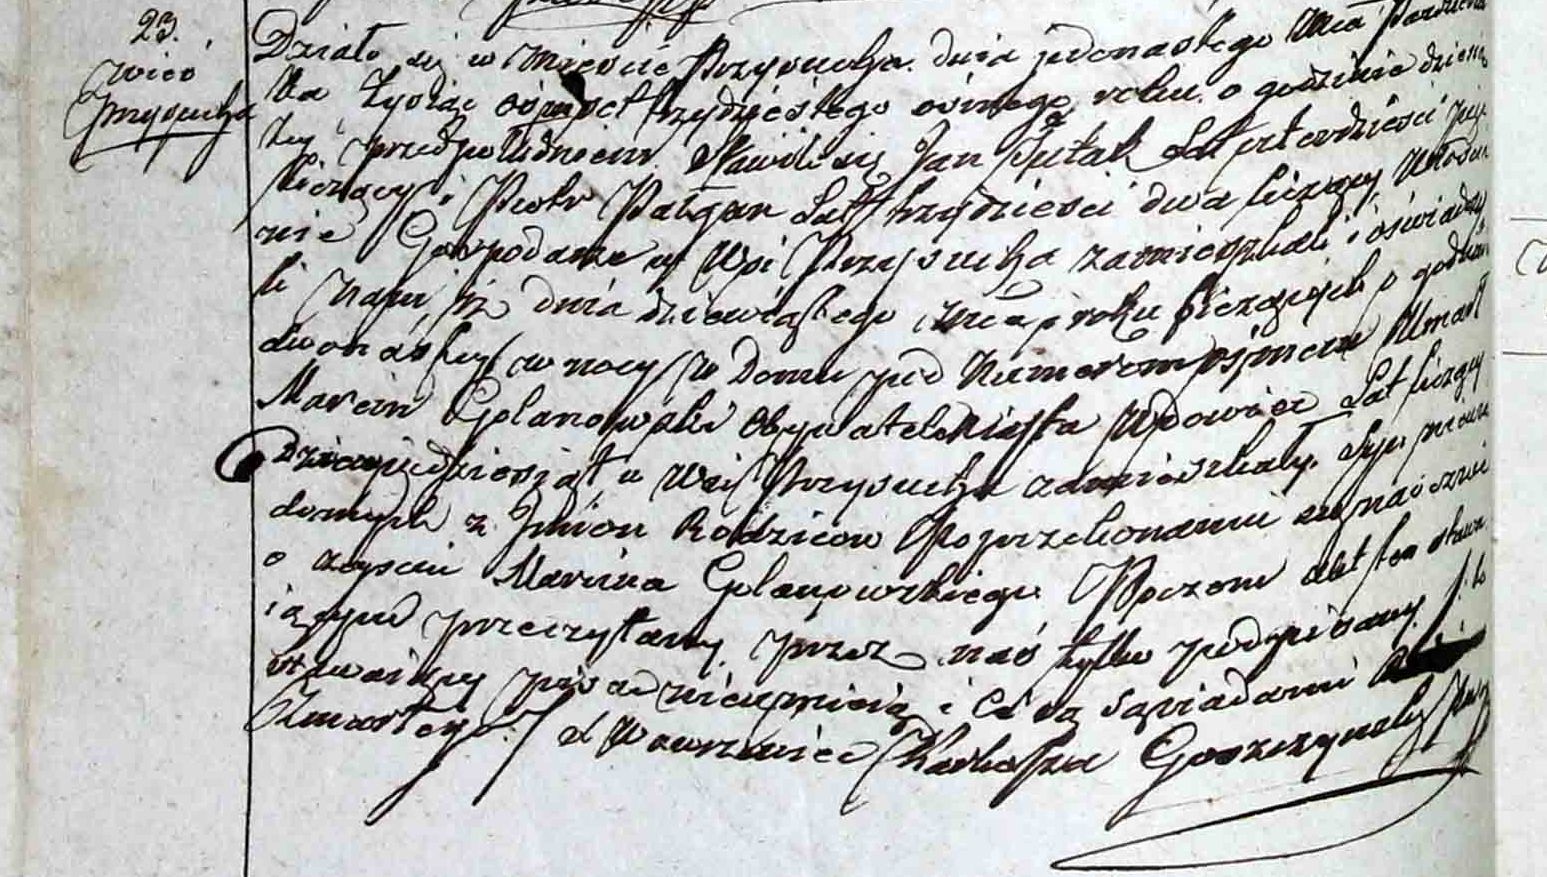 23.
wieś
Przysucha
Działo się w Mieście Przysucha dnia jedenastego Mca Październi
ka tysiąc ośmset trzydziestego ósmego roku o godzinie dziewią
tey przedpołudniem Stawili się Jan Lat czterdzieści pięć
liczący i Piotr Lat trzydzieści dwa liczący Włościa
nie Gospodarze w Wsi Przysucha zamieszkali i oświadczy
li nam, iż dnia dziewiątego Mca i roku bieżących o godzinie
dwunastey w nocy w Domu pod Numerem ósmem Umarł
Marcin Golanowski Obywatel Miasta Wdowiec Lat liczący
Dziewiędziesiąt w Wsi Przysucha zamieszkały. Syn niewia
domych z Imion Rodziców Po przekonaniu się naocznie
o zeyściu Marcina Golanowskiego. Poczem akt ten stawa
iącym przeczytany przez nas tylko podpisany, /: bo
stawaiący pisać nieumieią i są sąsiadami
Zmarłego :/ X Wawrzeniec Goszczyński